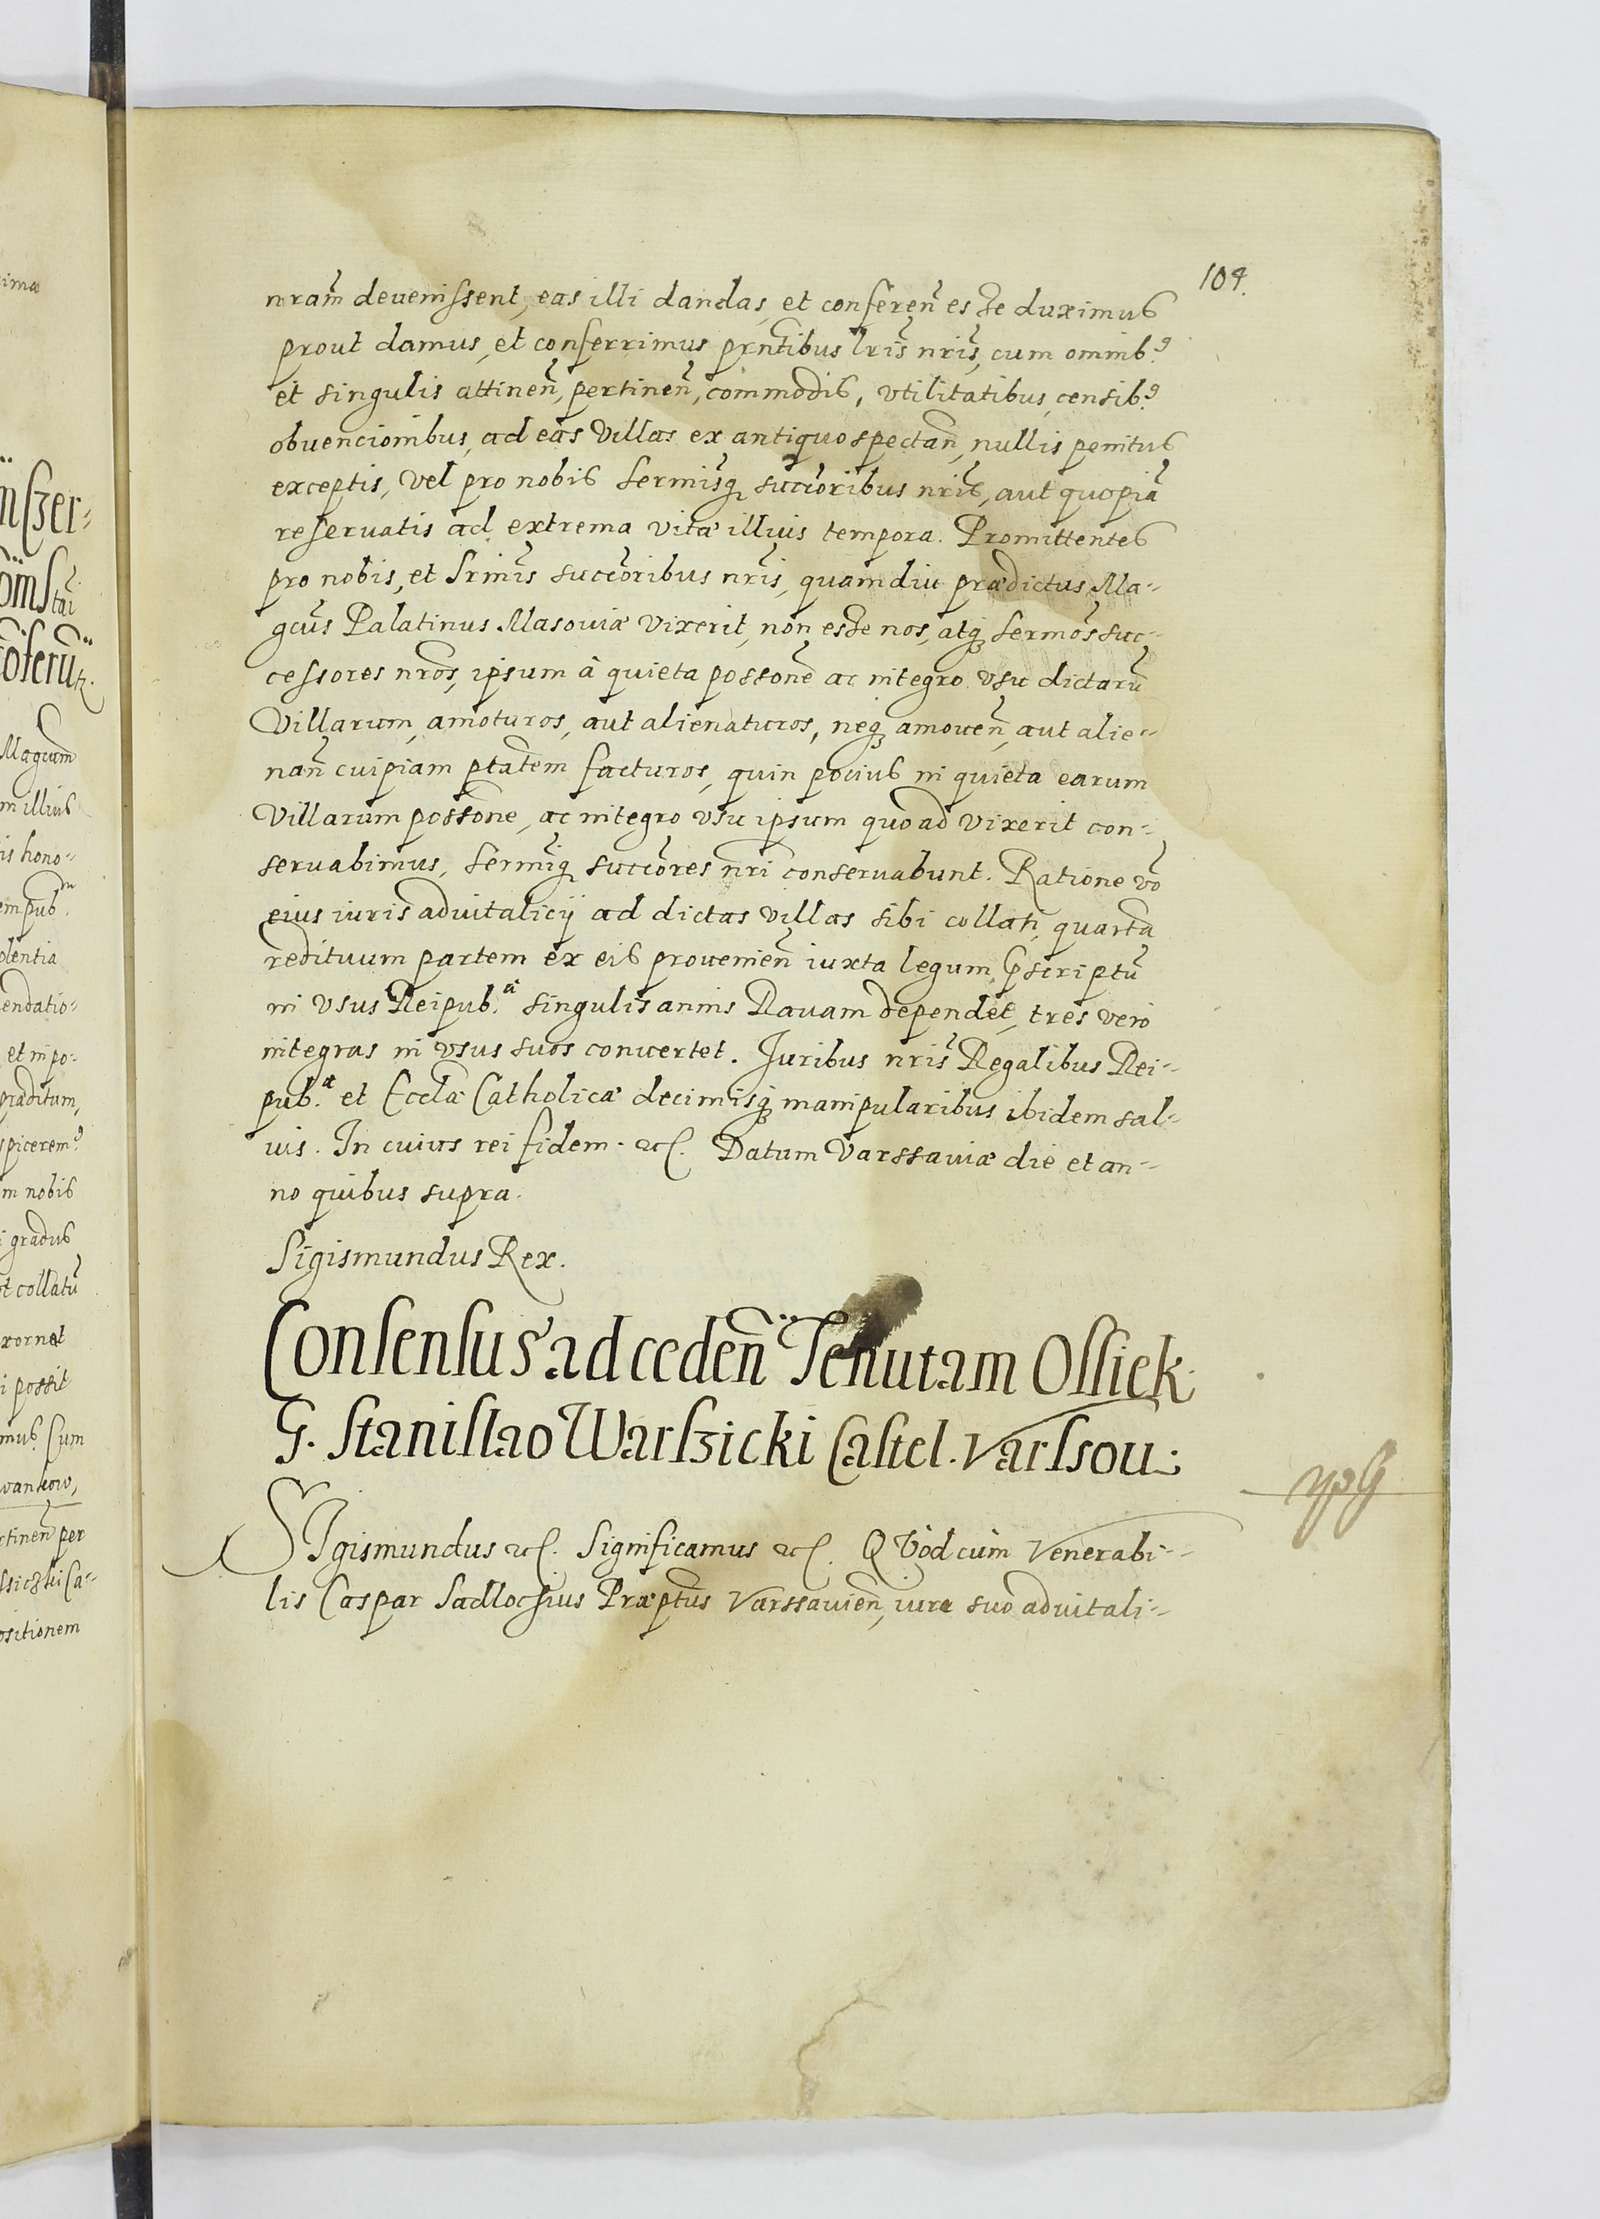 104.
nram̃ deuenissent, eas illi dandas, et conferen̄ esse duximus
prout damus, et conferrimus prn̄tibus lr̄is nr̄is, cum omnib9
et singulis attinen̄, pertinen̄, commodis, vtilitatibus, censib9
obuencionibus, ad eas villas ex antiquo spectan̄, nullis penitus
exceptis, vel pro nobis sermisq; succōribus nr̄is, aut quopiā
reseruatis ad extrema vitæ illius tempora. Promittentes
pro nobis, et Srm̄is succōribus nr̄is, quamdiu prædictus Ma-
gcūs Palatinus Masouiæ vixerit, non esse nos, atq; sermōs suc-
cessores nrōs, ipsum à quieta possōne ac integro vsu dictarū
Villarum, amoturos, aut alienaturos, neq; amouen̄, aut alie-
nan̄ cuipiam ptātem facturos, quin pocius in quieta earum
Villarum possōne, ac integro vsu ipsum quoad vixerit con-
seruabimus, sermiq; succōres nr̄i conseruabunt. Ratione vō
eius iuris aduitalicij ad dictas villas sibi collati, quarta
redituum partem ex eis prouenien̄ iuxta legum pscriptū
in vsus Reipub.æ singulis annis Rauam dependet, tres vero
integras in vsus suos conuertet. Juribus nr̄is Regalibus Rei-
pub.æ et Eccłæ Catholicæ decimisq; manipularibus ibidem sal-
uis. In cuius rei fidem. etc. Datum Varssauiæ die et an-
no quibus supra.
Sigismundus Rex.
Consensus ad ceden̄ Tenutam Ossiek
G. Stanislao Warszicki Castel. Varssou:
SIgismundus etc. Significamus etc. QVod cùm Venerabi-
lis Caspar Sadlochius Præptūs Varssauien̄, iure suo aduitali-